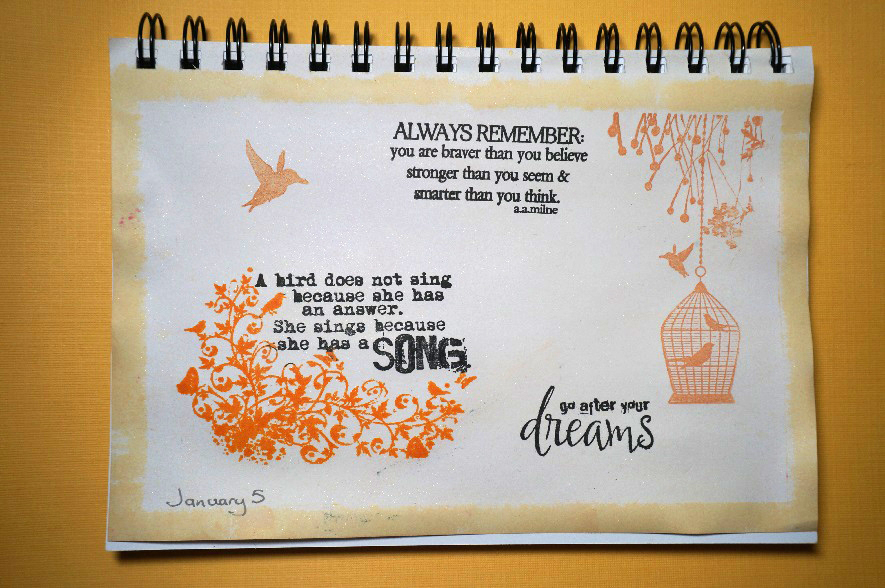 ALWAYS REMEMBER:
you are braver than you believe
stronger than you seem &
smarter than you think.
a.a.milne
A bird does not sing
because she has
an answer.
She sings because
she has a SONG.
go after your
dreams
January 5